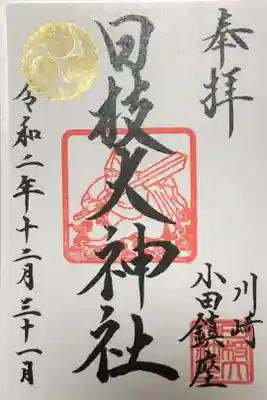 奉拝
川崎
小田鎮座
日枝大神社
令和二年十二月三十一月